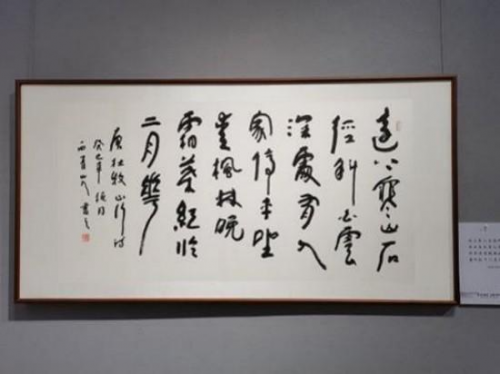 遠上寒山石
径斜白雲
深處有人
家停車坐
愛楓林晚
霜葉紅於
二月華
唐杜牧山行詩
癸巳年
書之